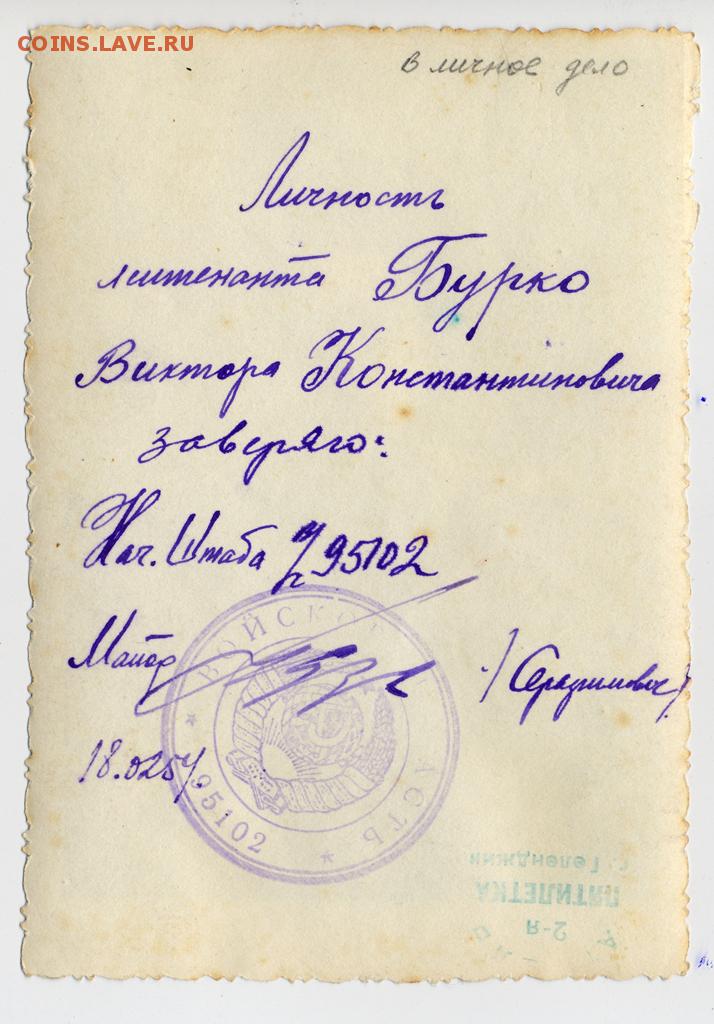 COINS.LAVE.RU
в личное дело
Личность
лейтенанта Бурко
Виктора Константиновича
заверяю:
Нач. Штаба ч/ 95102
Майор
18.02.57
ВОЙСКОВ ЧАСТЬ
95102
г. Геленджик
ПЯТИЛЕТКА
2-я